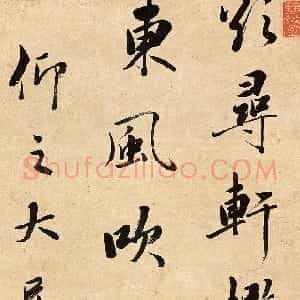 尋軒
東風吹
仰之大
Shufaziliao.com